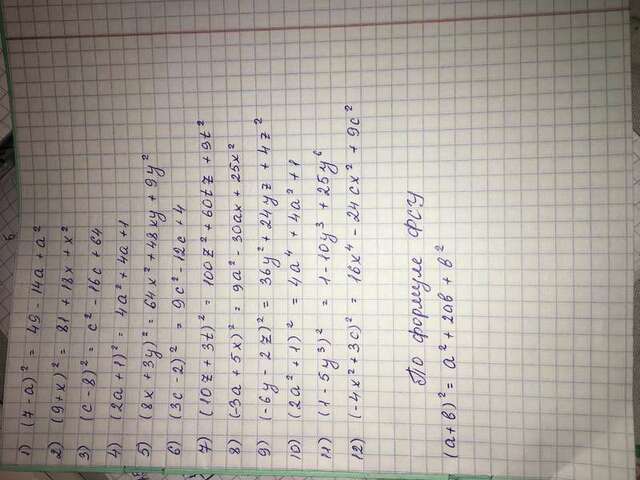 6
1) (7-a)² = 49 - 14a + a²
2) (9+x)² = 81 + 18x + x²
3) (c-8)² = c² - 16c + 64
4) (2a+1)² = 4a² + 4a + 1
5) (8x + 3y)² = 64x² + 48xy + 9y²
6) (3c - 2)² = 9c² - 12c + 4
7) (10z + 3t)² = 100z² + 60tz + 9t²
8) (-3a + 5x)² = 9a² - 30ax + 25x²
9) (-6y - 2z)² = 36y² + 24yz + 4z²
10) (2a² + 1)² = 4a⁴ + 4a² + 1
11) (1 - 5y³)² = 1 - 10y³ + 25y⁶
12) (-4x² + 3c)² = 16x⁴ - 24cx² + 9c²
По формуле ФСУ
(а+в)² = а² + 2ав + в²